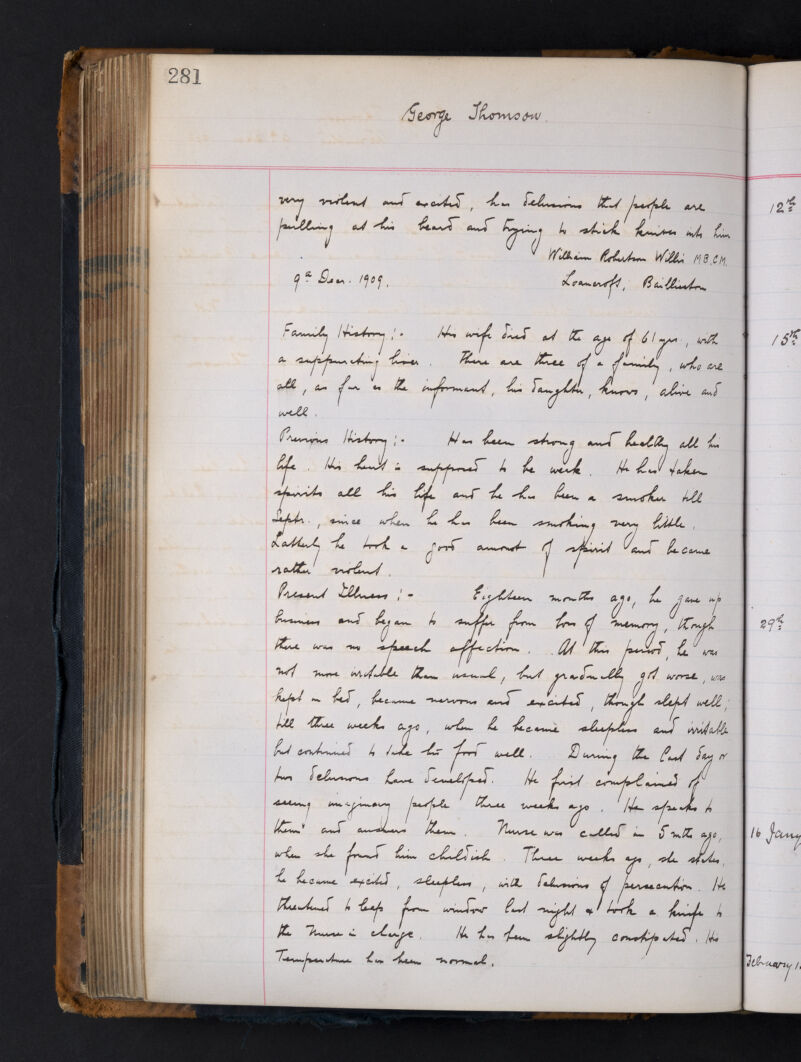 281
George Thomson.
very violent and excited, has delusions that people are
pulling at his beard and trying to stick knives into him
William Robertson Willis M.B.C.M.
9th Decr. 1909.
Loancroft, Baillieston
Family History:- His wife died at the age of 61 yrs, with
a suppurating liver. There are three of a family, who are
all, as far as the informant, his daughter, knows, alive and
well.
Previous History:- Has been strong and healthy all his
life. His heart is supposed to be weak. He has taken
spirits all his life and he has been a smoker till
Septr., since when he has been smoking very little.
Latterly he took a good amount of spirit and became
rather violent.
Present Illness:- Eighteen months ago, he gave up
business and began to suffer from loss of memory, though
there was no speech affection. At this period, he was
not more irritable than usual, but gradually got worse, was
kept in bed, became nervous and excited, though slept well,
till three weeks ago, when he became sleepless and irritable
but continued to take his food well. During the last day or
two delusions have developed. He first complained of
seeing imaginary people three weeks ago. He speaks to
them and answers them. Nurse was called in 5 mths ago,
when she found him childish. Three weeks ago, she states,
he became excited, sleepless, with delusions of persecution. He
threatened to leap from window last night & took a knife to
the Nurse in charge. He has been slightly constipated. His
Temperature has been normal.
12th
15th
29th
16 Jany
February 1